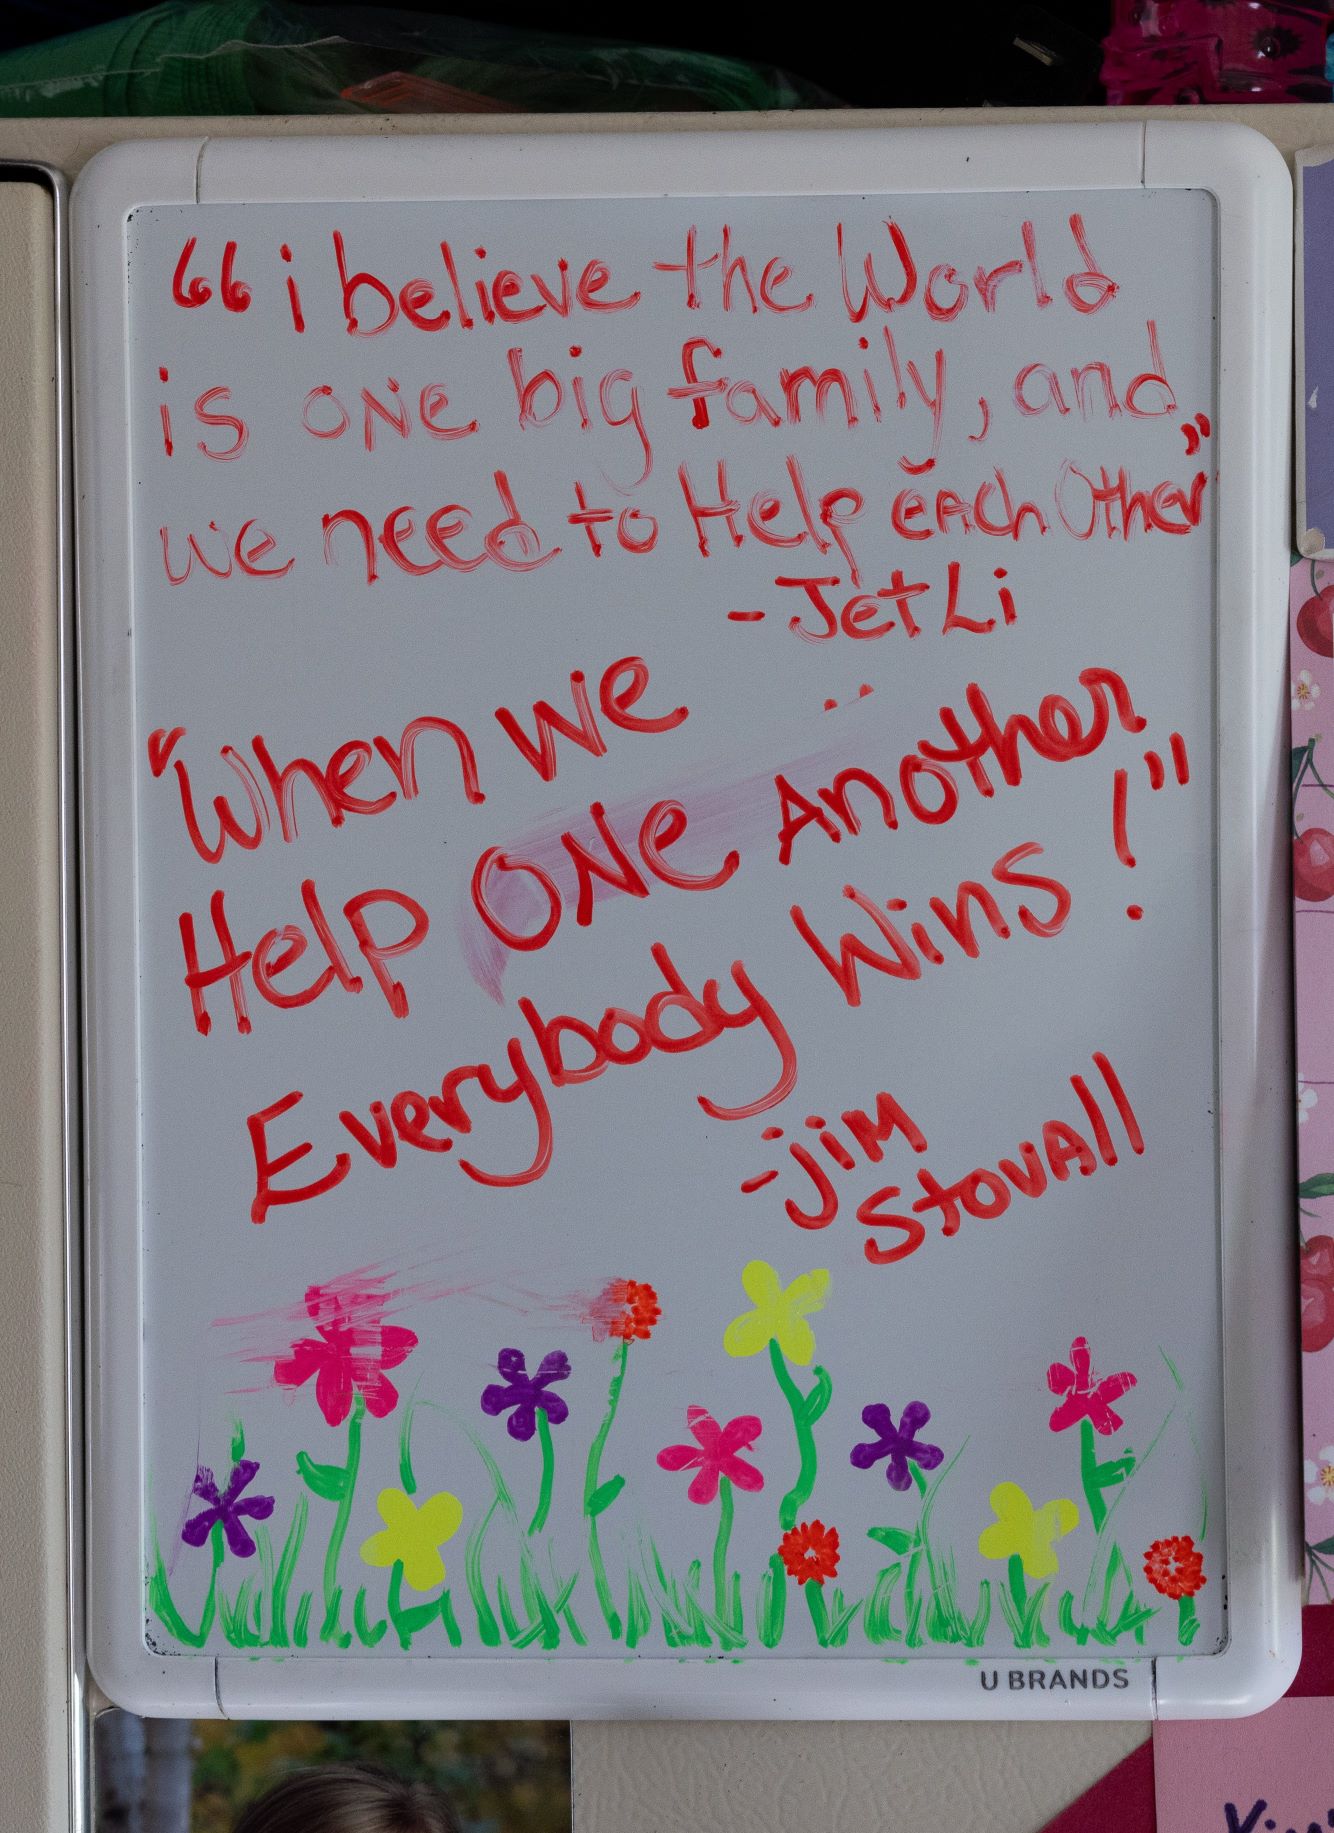 “i believe the World
is ONe big family, and
we need to Help eAch Other”
- Jet Li
"When we
Help ONe Another
Everybody Wins!"
- jiM
StovAll
U BRANDS